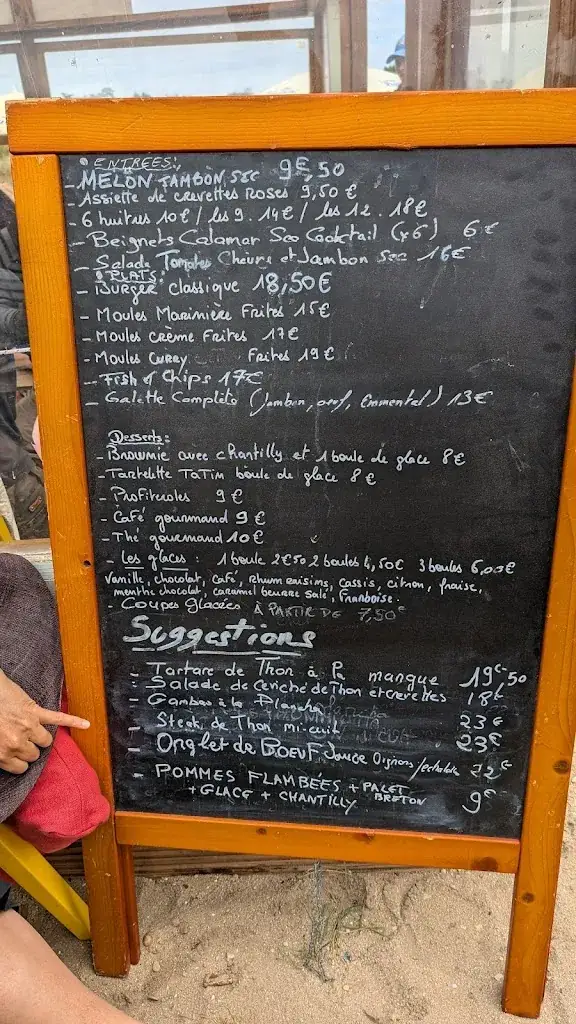 ENTREES:
- MELON JAMBON SEC 9€,50
- Assiette de crevettes Roses 9,50 €
- 6 huitres 10€ / les 9. 14€ / les 12. 18€
- Beignets Calamar Sce Cocktail (x6) 6 €
- Salade Tomates Chèvre et Jambon sec 16€
PLATS:
- BURGER classique 18,50€
- Moules Marinière Frites 15€
- Moules crème Frites 17€
- Moules Curry Frites 19€
- Fish & Chips 17€
- Galette Complète (Jambon, oeuf, Emmental) 13€
Desserts:
- Brownie avec chantilly et 1 boule de glace 8€
- Tartelette TaTin boule de glace 8€
- Profiteroles 9€
- Café gourmand 9€
- Thé gourmand 10€
- Les glaces : 1 boule 2€50 2 boules 4,50€ 3 boules 6,00€
Vanille, chocolat, café, rhum raisins, cassis, citron, fraise,
menthe chocolat, caramel beurre salé, Framboise.
- Coupes glacées À PARTIR DE 7,50€
Suggestions
- Tartare de Thon à la mangue 19€,50
- Salade de Ceviche de Thon et crevettes 18€
- Gambas à la Plancha 23€
- Steak de Thon mi-cuit 23€
- Onglet de BOEUF Sauce Oignons/echalote 22€
- POMMES FLAMBÉES + PALET BRETON
+ GLACE + CHANTILLY 9€